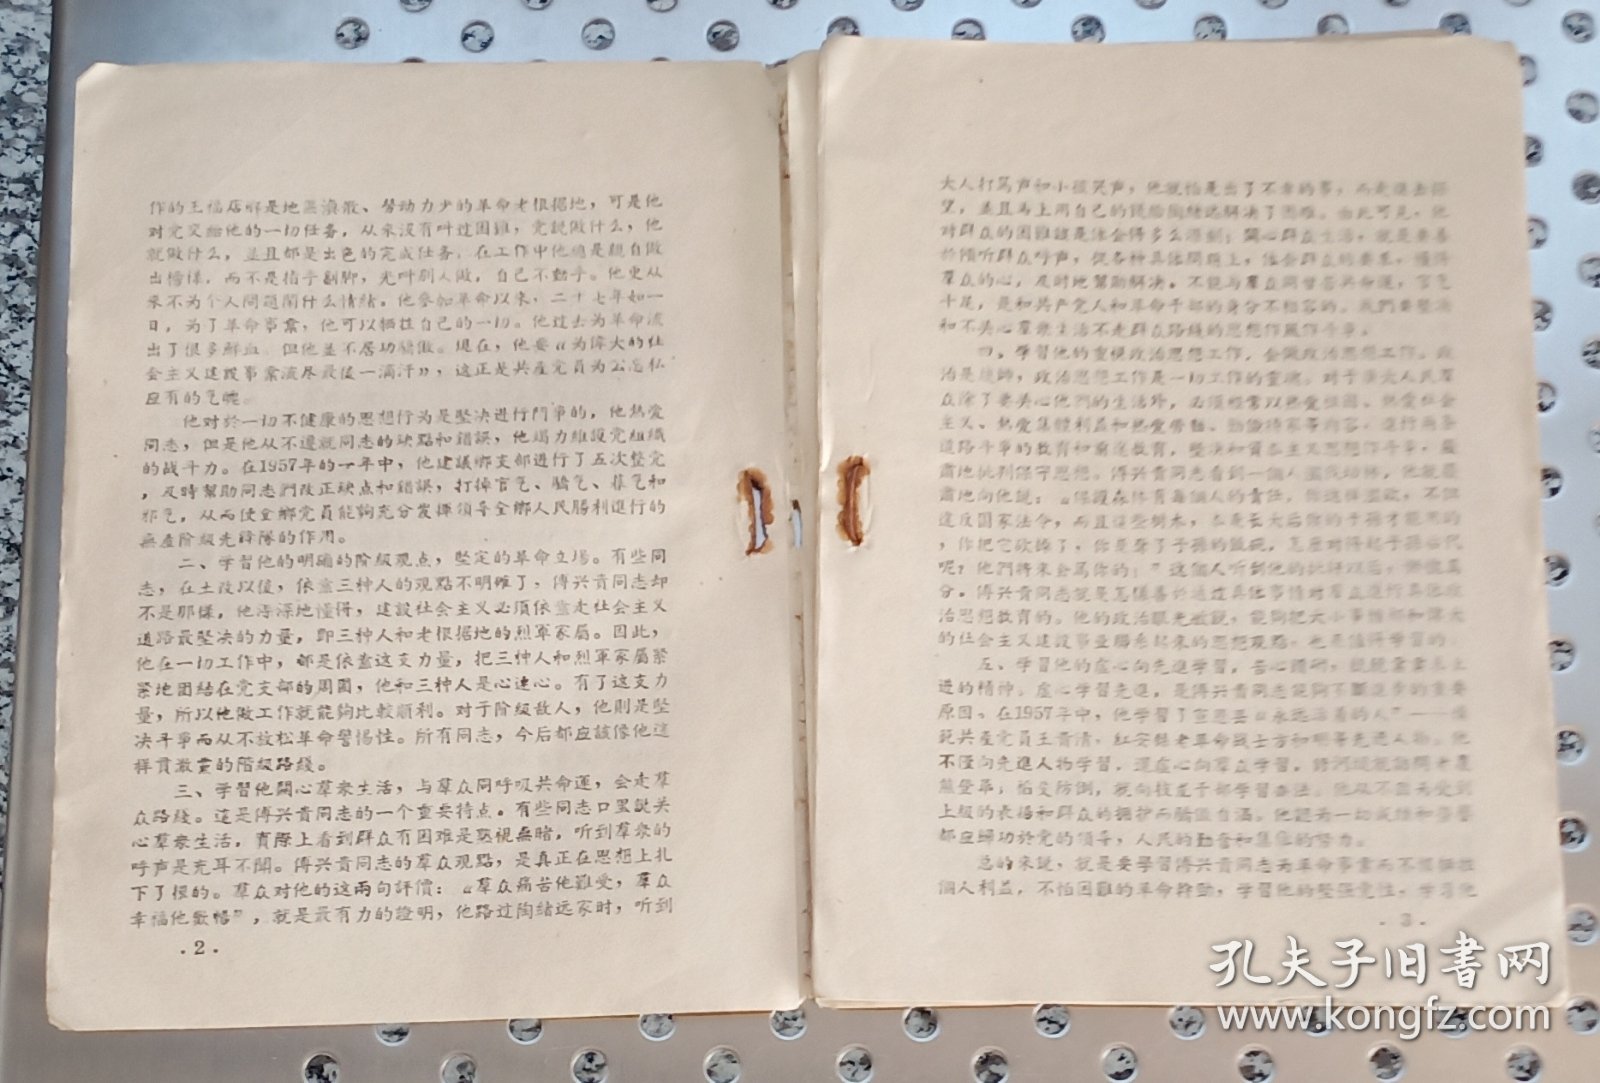 作的王福店鄉是地無渙散、劳动力少的革命老根据地，可是他
对党交給他的一切任务，从来沒有叫过困难，党說做什么，他
就做什么，並且都是出色的完成任务，在工作中他總是親自做
出榜樣，而不是指手劃脚，光叫別人做，自己不動手。他更从
来不为个人問題鬧什么情緒。他参加革命以来，二十七年如一
日，为了革命事業，他可以牺牲自己的一切。他过去为革命流
出了很多鮮血，但他並不居功驕傲。現在，他要“为偉大的社
会主义建設事業流尽最後一滴汗”，这正是共産党員为公忘私
应有的气魄。
他对於一切不健康的思想行为是堅决进行鬥爭的，他热爱
同志，但是他从不遷就同志的缺點和錯誤，他竭力維護党組織
的战斗力。在1957年的一年中，他建議鄉支部進行了五次整党
，及时幫助同志們改正缺点和錯誤，打掉官气、驕气、暮气和
邪气，从而使全鄉党員能夠充分发揮領导全鄉人民勝利進行的
無產阶級先鋒隊的作用。
二、学習他的明确的阶級观点，堅定的革命立場。有些同
志，在土改以後，依靠三种人的观點不明確了，傅兴貴同志却
不是那樣，他深深地懂得，建設社会主义必須依靠走社会主义
道路最坚决的力量，即三种人和老根据地的烈軍家屬。因此，
他在一切工作中，都是依靠这支力量，把三种人和烈軍家屬緊
緊地团結在党支部的周圍，他和三种人是心連心。有了这支力
量，所以他做工作就能夠比較順利。对于阶級敌人，他則是堅
决斗爭而从不放松革命警惕性。所有同志，今后都应該像他这
样貫澈党的階級路綫。
三、学習他關心羣衆生活，与羣众同呼吸共命運，会走羣
众路綫。这是傅兴貴同志的一个重要特点。有些同志口里説关
心羣衆生活，實際上看到群众有困难是熟視無睹，听到羣衆的
呼声是充耳不聞。傅兴貴同志的羣众观點，是真正在思想上扎
下了根的。羣众对他的这兩句評價：“羣众痛苦他難受，羣众
幸福他歡暢”，就是最有力的證明，他路过陶緒远家时，听到
·2·
大人打罵声和小孩哭声，他就怕是出了不幸的事，而走進去探
望，並且馬上用自己的錢給陶緒远解决了困难。由此可見，他
对群众的困难該是体会得多么深刻；關心群众生活，就是要善
於傾听群众呼声，從各种具体問題上，体会群众的要求，懂得
羣众的心，及时地幫助解决。不能与羣众同甘苦共命運，官气
十足，是和共产党人和革命干部的身分不相容的。我們要堅决
和不关心羣衆生活不走群众路綫的思想作風作斗爭。
四、学習他的重視政治思想工作，会做政治思想工作。政
治是統帥，政治思想工作是一切工作的靈魂。对于廣大人民羣
众除了要关心他們的生活外，必須經常以热爱祖國、热爱社会
主义、热爱集體利益和热爱劳動、勤儉持家等内容，進行兩条
道路斗爭的教育和前途教育，堅决和資本主义思想作斗爭，嚴
肅地批判保守思想。傅兴貴同志看到一個人濫伐幼林，他就嚴
肅地向他説：“保護森林有每個人的責任，你这样濫砍，不但
違反国家法令，而且这些樹木，本是長大后你的子孫才能用的
，你把它砍掉了，你是砸了子孫的飯碗，怎麽对得起子孫后代
呢？他們將来会罵你的；”这個人听到他的批評以后，
分。傅兴貴同志就是怎樣善於通过具体事情对羣众進行具体政
治思想教育的。他的政治眼光敏銳，能夠把大小事情都和偉大
的社会主义建設事業聯系起来的思想观點，也是值得学習的。
五、学習他的虛心向先進学習，苦心鑽研，
進的精神。虛心学習先進，是傅兴貴同志能夠不斷進步的重要
原因。在1957年中，他学習了宣恩县“永远活着的人”——模
范共產党員王青清，紅安縣老革命战士方和明等先進人物。他
不僅向先進人物学習，还虛心向羣众学習，
就向技
上級的表揚和群众的拥护而驕傲自滿。他認为一切成績和榮譽
都应歸功於党的領导，人民的勤奋和集体的努力。
总的来説，就是要学習傅兴貴同志为革命事業而不惜牺牲
個人利益，不怕困難的革命幹勁，学習他的堅强党性，学習他
·3·
孔夫子旧書网
www.kongfz.com